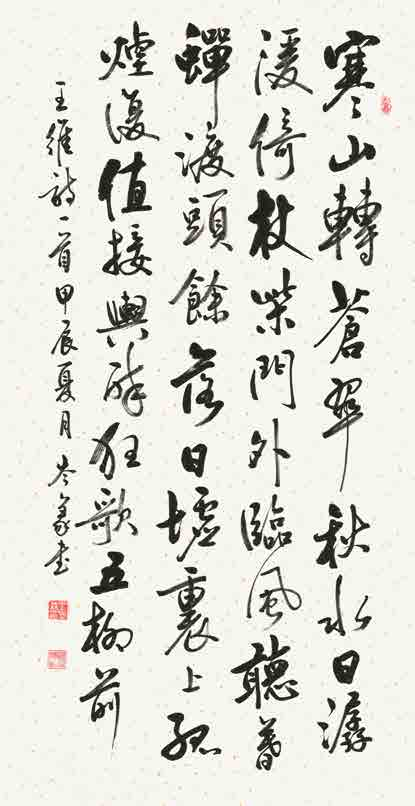 寒山轉蒼翠秋水日潺
湲倚杖柴門外臨風聽暮
蟬渡頭餘落日墟裏上孤
煙復值接輿醉狂歌五柳前
王維詩一首甲辰夏月岑書